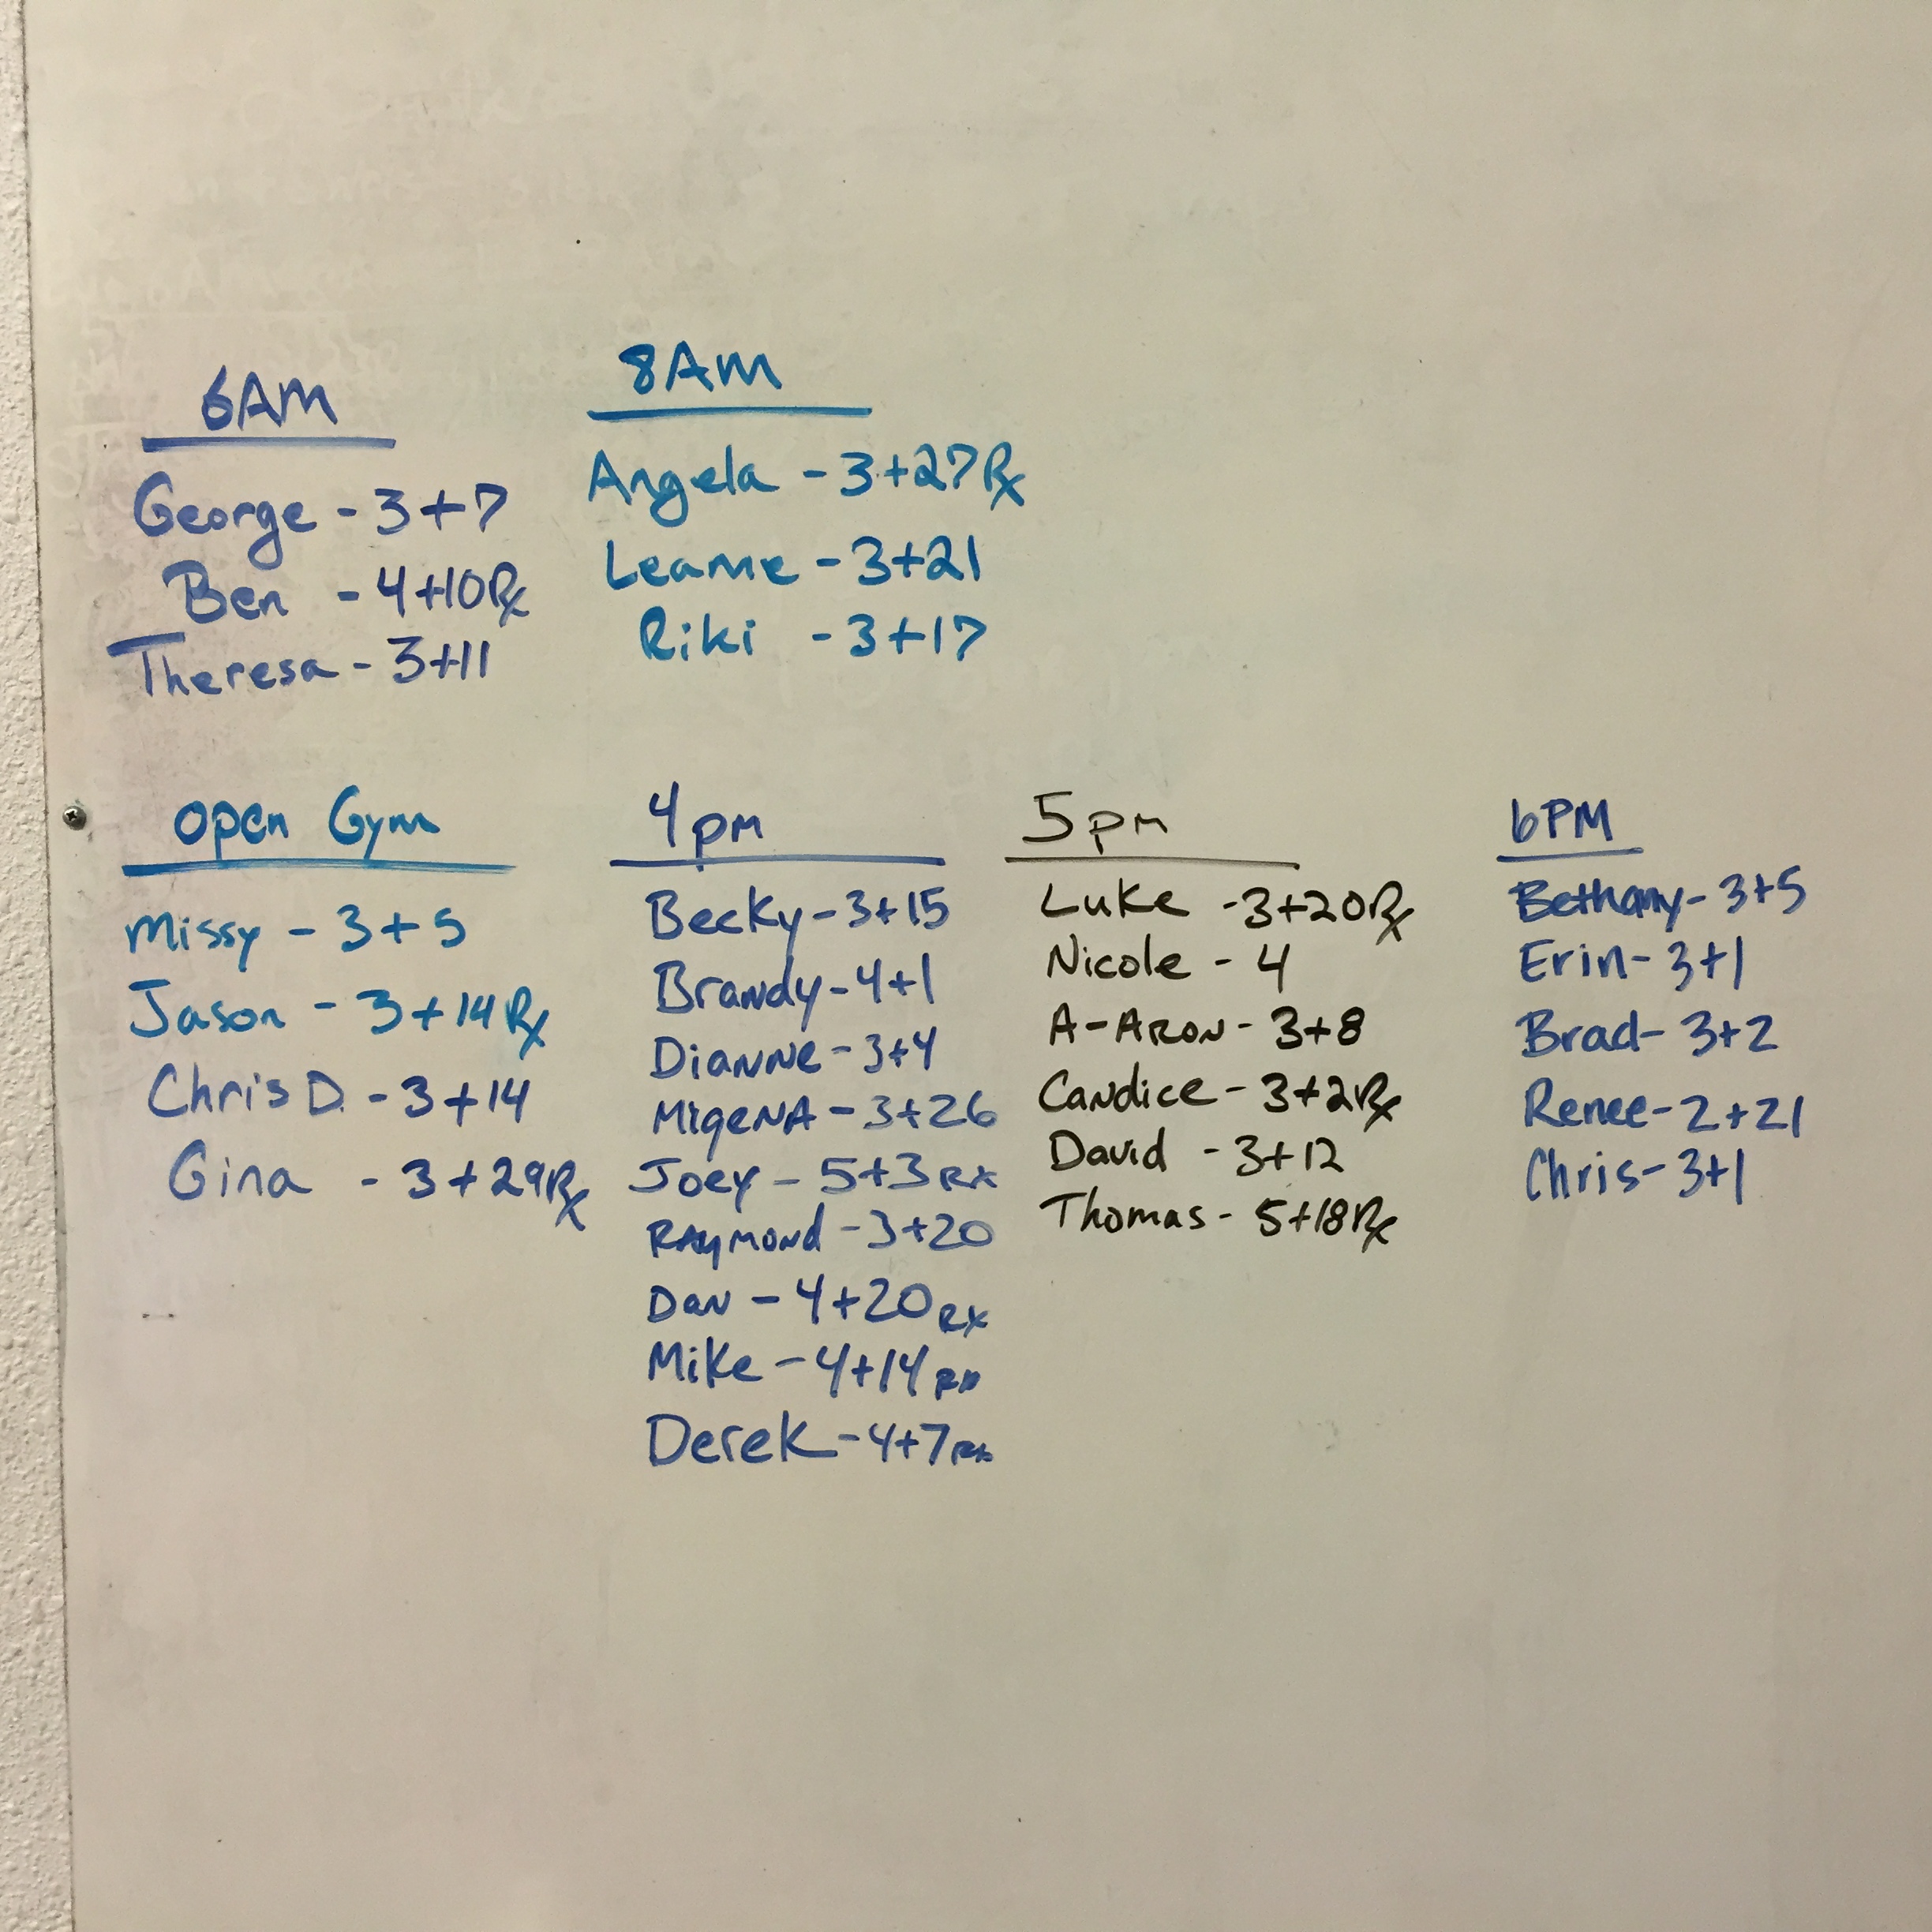 6AM
George - 3+7
Ben - 4+10 Rx
Theresa - 3+11
8AM
Angela - 3+27 Rx
Leanne - 3+21
Riki - 3+17
open Gym
Missy - 3+5
Jason - 3+14 Rx
Chris D. - 3+14
Gina - 3+29 Rx
4pm
Becky - 3+15
Brandy - 4+1
Dianne - 3+4
MigeNA - 3+26
Joey - 5+3 Rx
RAymond - 3+20
Dan - 4+20 Rx
Mike - 4+14 Rx
Derek - 4+7 Rx
5pm
Luke - 3+20 Rx
Nicole - 4
A-ARON - 3+8
Candice - 3+2 Rx
David - 3+12
Thomas - 5+18 Rx
6PM
Bethany - 3+5
Erin - 3+1
Brad - 3+2
Renee - 2+21
Chris - 3+1